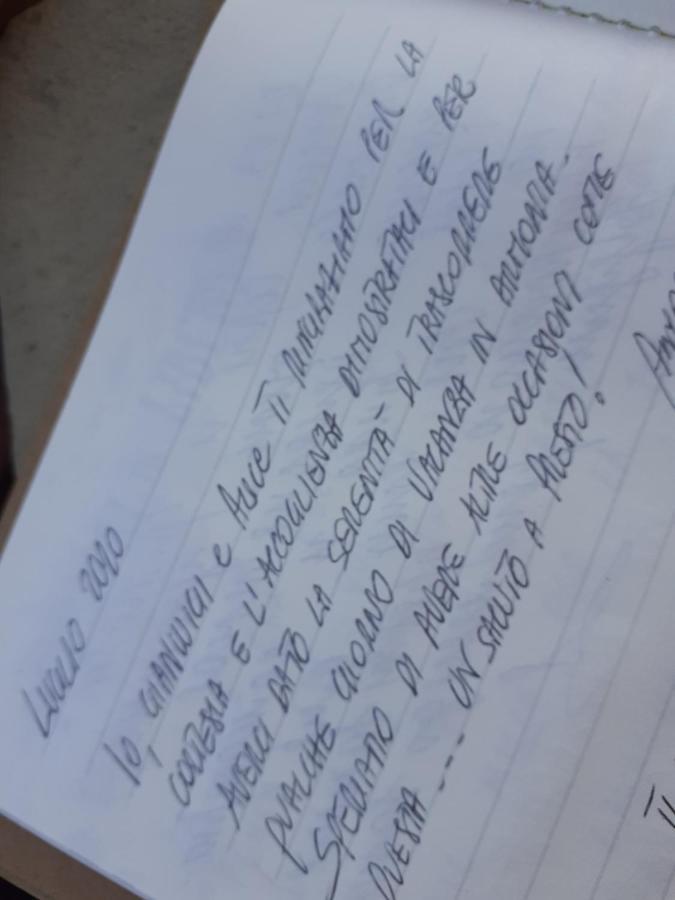 LUGLIO 2020
IO, GIANLUIGI e ALICE TI RINGRAZIAMO PER LA
CORTESIA E L'ACCOGLIENZA DIMOSTRATACI E PER
AVERCI DATO LA SERENITA' DI TRASCORRERE
QUALCHE GIORNO DI VACANZA IN ARMONIA.
SPERIAMO DI AVERE ALTRE OCCASIONI COME
QUESTA .... UN SALUTO A PRESTO!